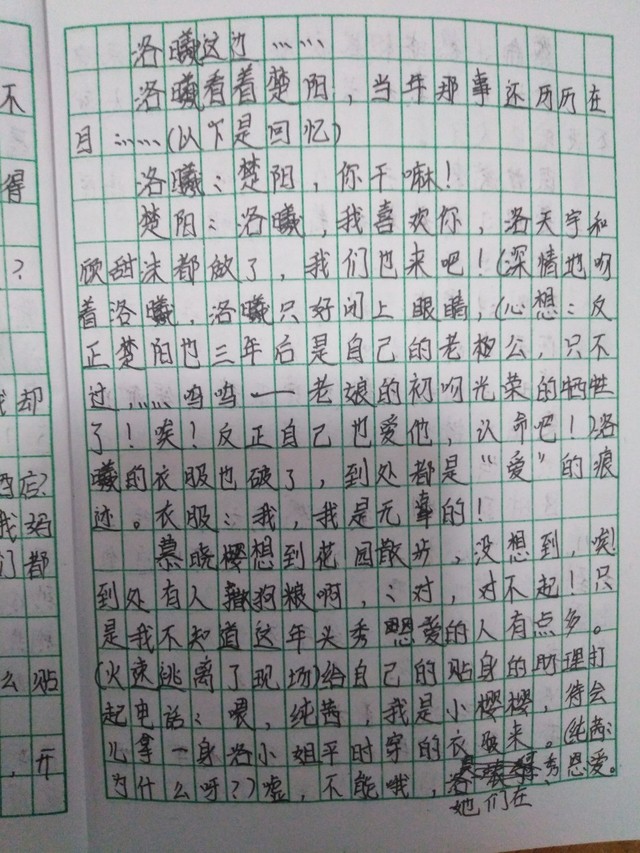 洛曦这边……
洛曦看着楚阳，当年那事还历历在
目……(以下是回忆)
洛曦：楚阳，你干嘛！
楚阳：洛曦，我喜欢你，洛天宇和
颀甜沫都做了，我们也来吧！(深情地吻
着洛曦，洛曦只好闭上眼睛，(心想：反
正楚阳也三年后是自己的老公，只不
过，……呜呜——老娘的初吻光荣的牺牲
了！唉！反正自己也爱他，认命吧！)洛
曦的衣服也破了，到处都是“爱”的痕
迹。衣服：我，我是无辜的！
慕晓樱想到花园散步，没想到，唉！
到处有人撒狗粮啊，：对，对不起！只
是我不知道这年头秀恩爱的人有点多。
(火速逃离了现场)给自己的贴身的助理打
起电话：喂，纯茜，我是小樱樱，待会
儿拿一身洛小姐平时穿的衣服来。(纯茜：
为什么呀？)嘘，不能哦，她们在秀恩爱。
不
得
？
却
酒店？
我妈
们都
么贴
，开